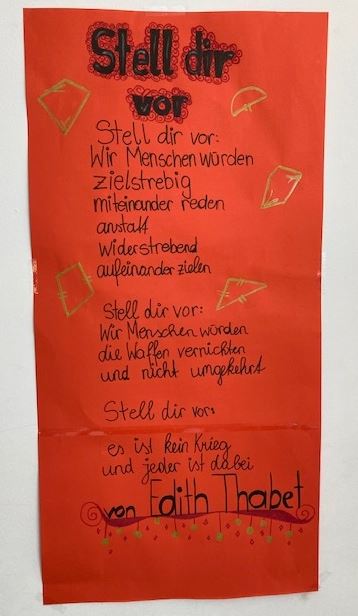 Stell dir
vor
Stell dir vor:
Wir Menschen würden
zielstrebig
miteinander reden
anstatt
widerstrebend
aufeinander zielen
Stell dir vor:
Wir Menschen würden
die Waffen vernichten
und nicht umgekehrt
Stell dir vor:
es ist kein Krieg
und jeder ist dabei
von Edith Thabet